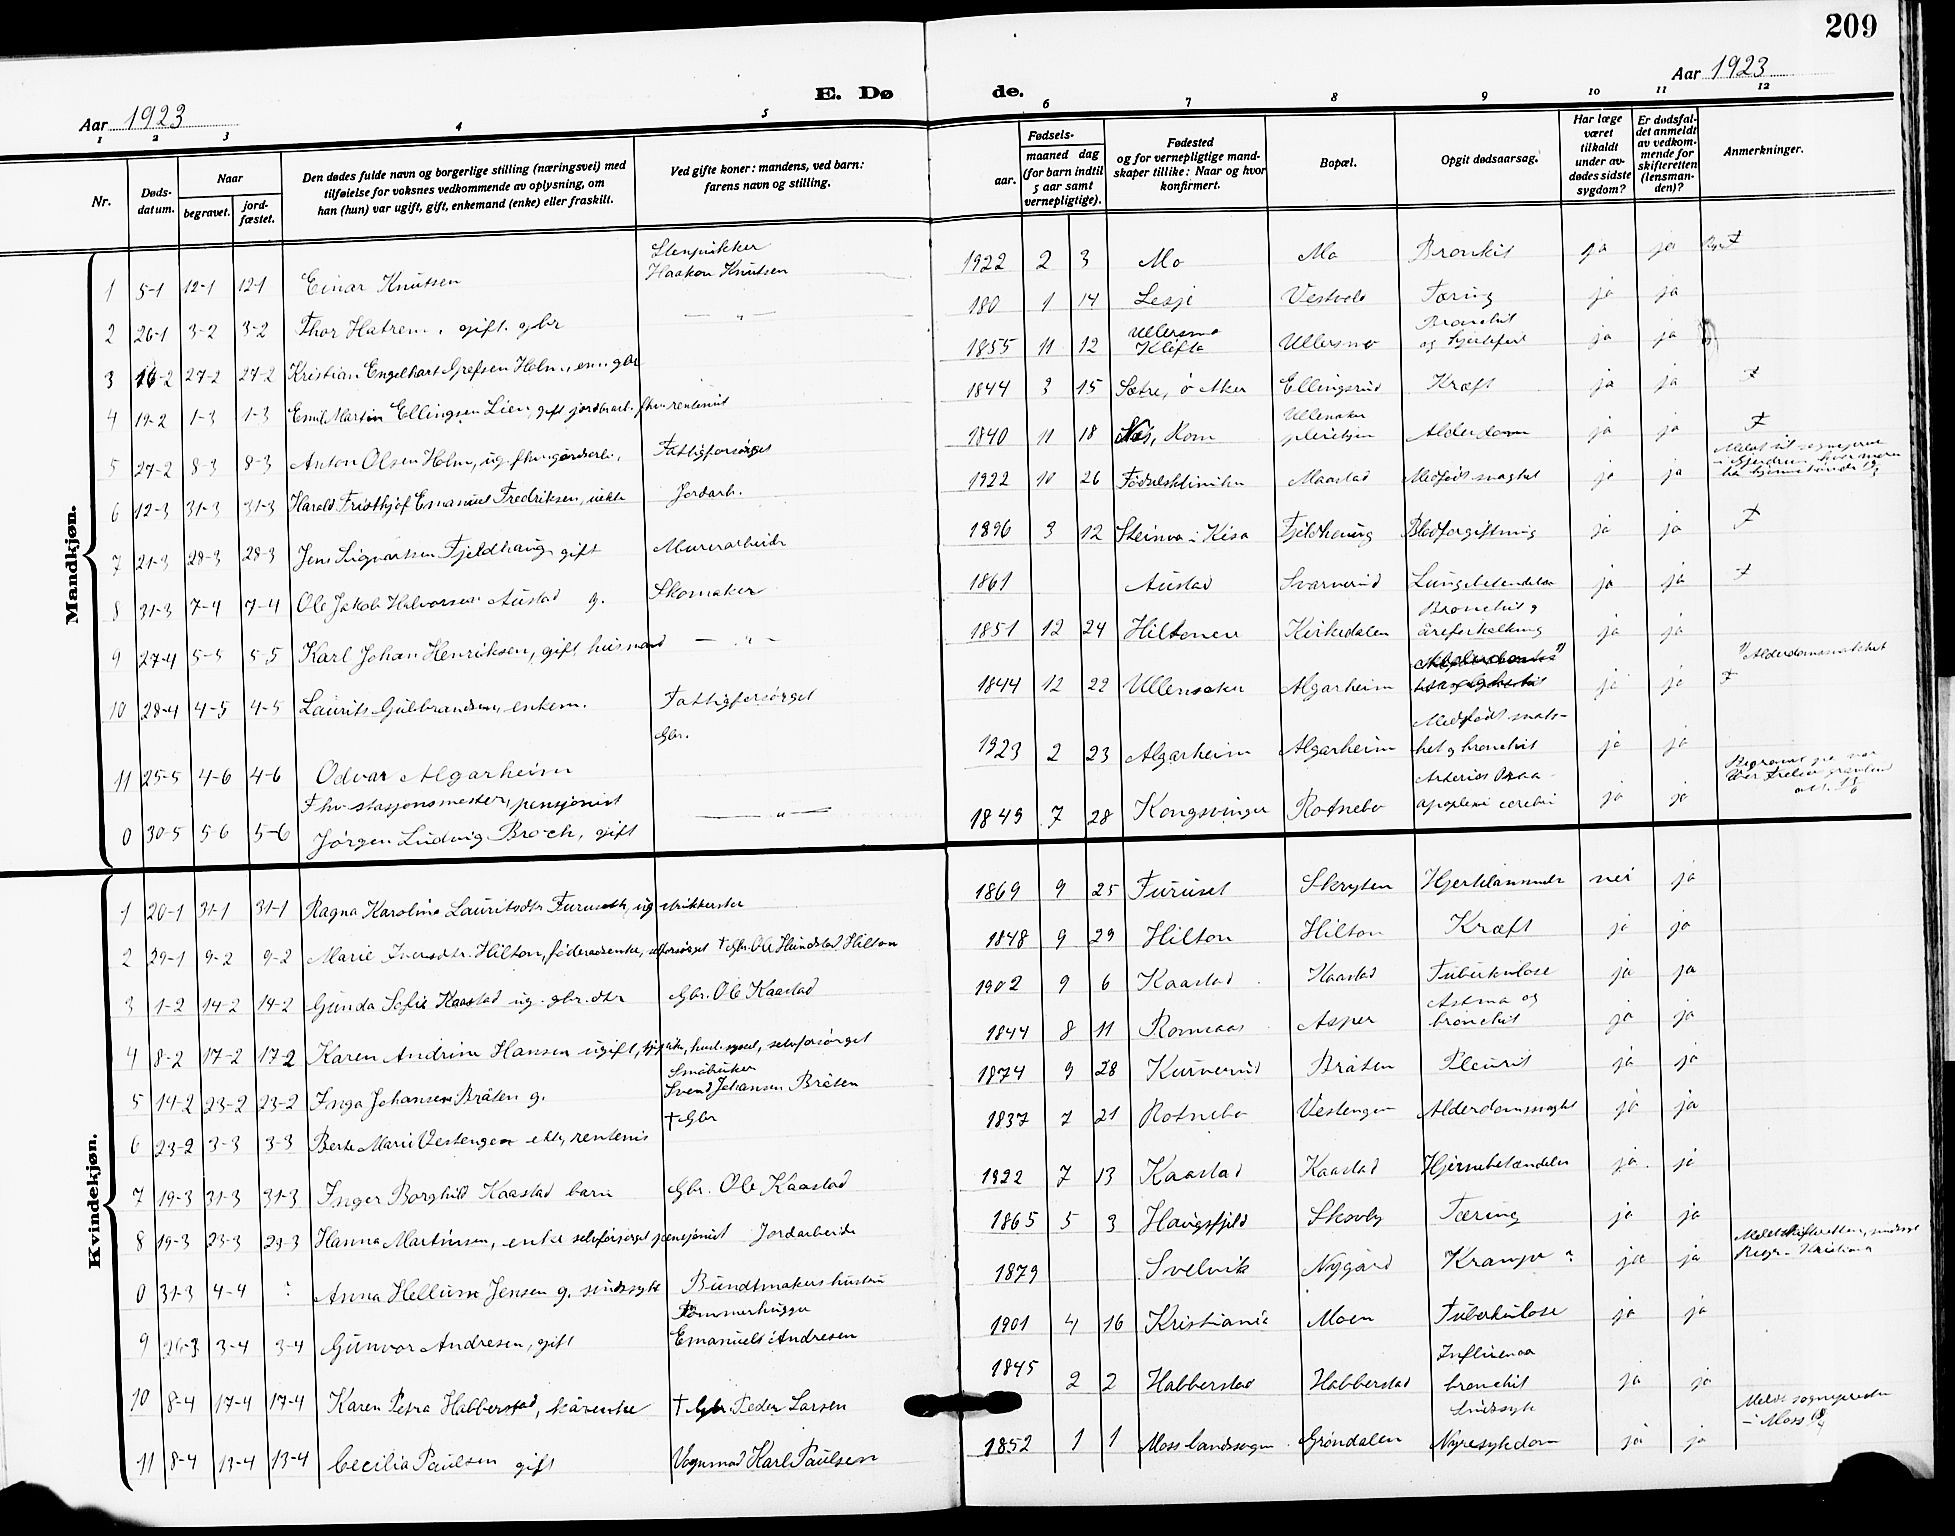 209
Aar 1923
E. Dø de.
Aar 1923
1 2 3 4 5 6 7 8 9 10 11 12
Nr.
Døds-
datum.
Naar
begravet.
jord-
fæstet.
Den dødes fulde navn og borgerlige stilling (næringsvei) med
tilføielse for voksnes vedkommende av oplysning, om
han (hun) var ugift, gift, enkemand (enke) eller fraskilt.
Ved gifte koner: mandens, ved barn:
farens navn og stilling.
Fødsels-
aar.
maaned dag
(for barn indtil
5 aar samt
vernepligtige).
Fødested
og for vernepligtige mand-
skaper tillike: Naar og hvor
konfirmert.
Bopæl.
Opgit dødsaarsag.
Har læge
været
tilkaldt
under av-
dødes sidste
sygdom?
Er dødsfal-
det anmeldt
av vedkom-
mende for
skifteretten
(lensman-
den)?
Anmerkninger.
Mandkjøn.
1 5-1 12-1 12-1 Einar Knutsen Stenpikker Haakon Knutsen 1922 2 3 Mo Mo Bronkit ja ja
2 26-1 3-2 3-2 Thor Hatrem, gift. gbr — " — 180 1 14 Lesje Tæring ja ja
3 16-2 27-2 27-2 Kristian Engelhart Grefsen Holm, em. gbr 1855 11 12 Ullersmo Kløfta Ullersmo Bronchit og hjertefeil ja ja
4 19-2 1-3 1-3 Emil Martin Ellingsen Lien, gift jordbrarb. fhv. rentenist 1844 3 15 Sætre, ö Aker Ellingsrud Kræft ja ja
5 27-2 8-3 8-3 Anton Olsen Holm, ug. fhv. gårdsarb., Fattigforsörget 1840 11 18 Nes, Rom Ullensaker pleiehjem Alderdom ja ja
6 12-3 31-3 31-3 Harald Fridthjof Emanuel Fredriksen, uekte Jordarb. 1922 10 26 Fødselsklinikken Maastad Medfödt svaghet ja ja
7 21-3 28-3 28-3 Jens Sigvartsen Fjeldhaug gift Murerarbeider 1896 3 12 Steinmo i Kisa Fjeldhaug Blodforgiftning ja ja
8 31-3 7-4 7-4 Ole Jakob Halvorsen Austad g. Skomaker 1861 Austad Svarverud Lungebetendelse ja ja
9 27-4 5-5 5-5 Karl Johan Henriksen, gift husmand — " — 1851 12 24 Hiltonen Kirkedalen Bronchit og åreforkalkning ja ja
10 28-4 4-5 4-5 Laurits Gulbrandsen, enkem. Fattigforsörget 1844 12 22 Ullensaker Algarheim ja ja Alderdomssvakhet
11 25-5 4-6 4-6 Odvar Algarheim Gbr. 1923 2 23 Algarheim Algarheim Medfødt svak-
het og bronchit ja ja
0 30-5 5-6 5-6 Fhv stasjonsmester, pensjonist
Jörgen Ludvig Broch, gift — " — 1849 7 28 Kongsvinger Rotnebo apoplexi cerebri ja ja
Kvindekjøn.
1 20-1 31-1 31-1 Ragna Karoline Lauritsdtr Furuseth, ug strikkerske 1869 9 25 Furuset Skryten Hjertelammelse nei ja
2 29-1 9-2 9-2 Marie Iversdtr. Hilton, föderaadsenke, selforsörget † Gbr. Ole Hundstad Hilton 1848 9 29 Hilton Hilton Kræft ja ja
3 1-2 14-2 14-2 Gunda Sofie Kaastad ug. gbr. dtr Gbr. Ole Kaastad 1902 9 6 Kaastad Kaastad Tuberkulose ja ja
4 8-2 17-2 17-2 Karen Andrine Hansen ugift, selvforsörget 1844 8 11 Romsaas Asper Astma og bronchit ja ja
5 14-2 23-2 23-2 Inga Johansen Bråten g. Småbruker Svend Johansen Bråten 1874 9 28 Kurverud Bråten Pleurit ja ja
6 23-2 3-3 3-3 Berte Marie Vestengen enke, rentenis † Gbr 1837 7 21 Rotnebo Vestengen Alderdomssvaghet ja ja
7 19-3 31-3 31-3 Inger Borghild Kaastad barn Gbr. Ole Kaastad 1922 7 13 Kaastad Kaastad Hjernebetændelse ja ja
8 19-3 23-3 23-3 Hanna Martinsen, enke selvforsörget pensjonist Jordarbeider 1865 5 3 Haugsfjeld Skovby Tæring ja ja
0 31-3 4-4 : Anna Hellum Jensen g. sindssyk Bundtmakers hustru 1879 Svelvik Nygård Krampe ? ja ja
9 26-3 3-4 3-4 Gunvor Andresen, gift Tømmerhugger Emanuel Andresen 1901 4 16 Kristiania Moen Tuberkulose ja ja
10 8-4 17-4 17-4 Karen Petra Habberstad, kårenke † Gbr Peder Larsen 1845 2 2 Habberstad Habberstad Influensa bronchit ja ja
11 8-4 13-4 13-4 Cecilia Paulsen gift Vognmand Karl Paulsen 1852 1 1 Moss landssogn Grøndalen Sindssyk Nyresykdom ja ja Meldt sognepresten i Moss